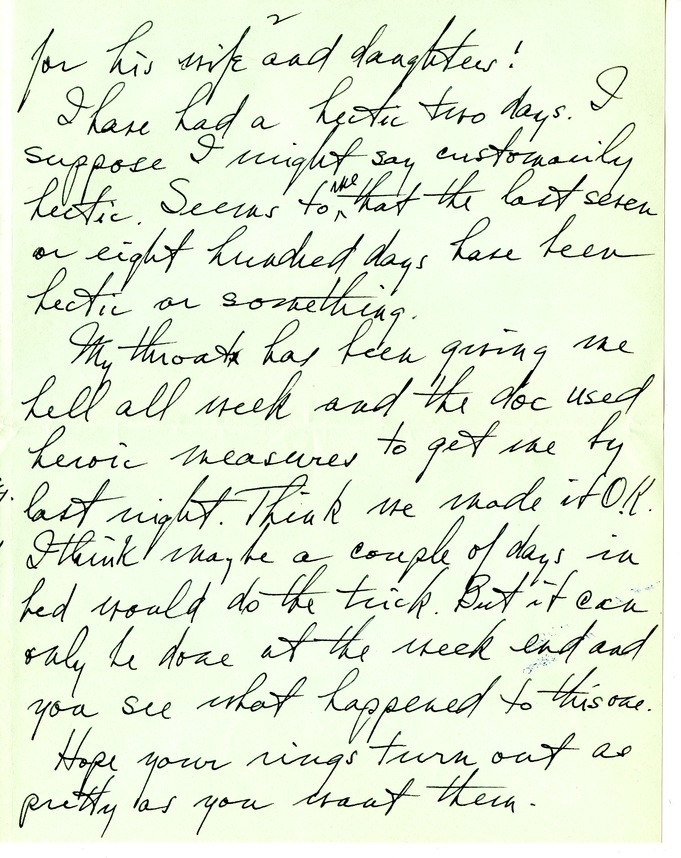 2
for his wife and daughters!
I have had a hectic two days. I
suppose I might say customarily
hectic. Seems to me that the last seven
or eight hundred days have been
hectic or something.
My throat has been giving me
hell all week and the doc used
heroic measures to get me by
last night. Think we made it O.K.
I think maybe a couple of days in
bed would do the trick. But it can
only be done at the week end and
you see what happened to this one.
Hope your rings turn out as
pretty as you want them.